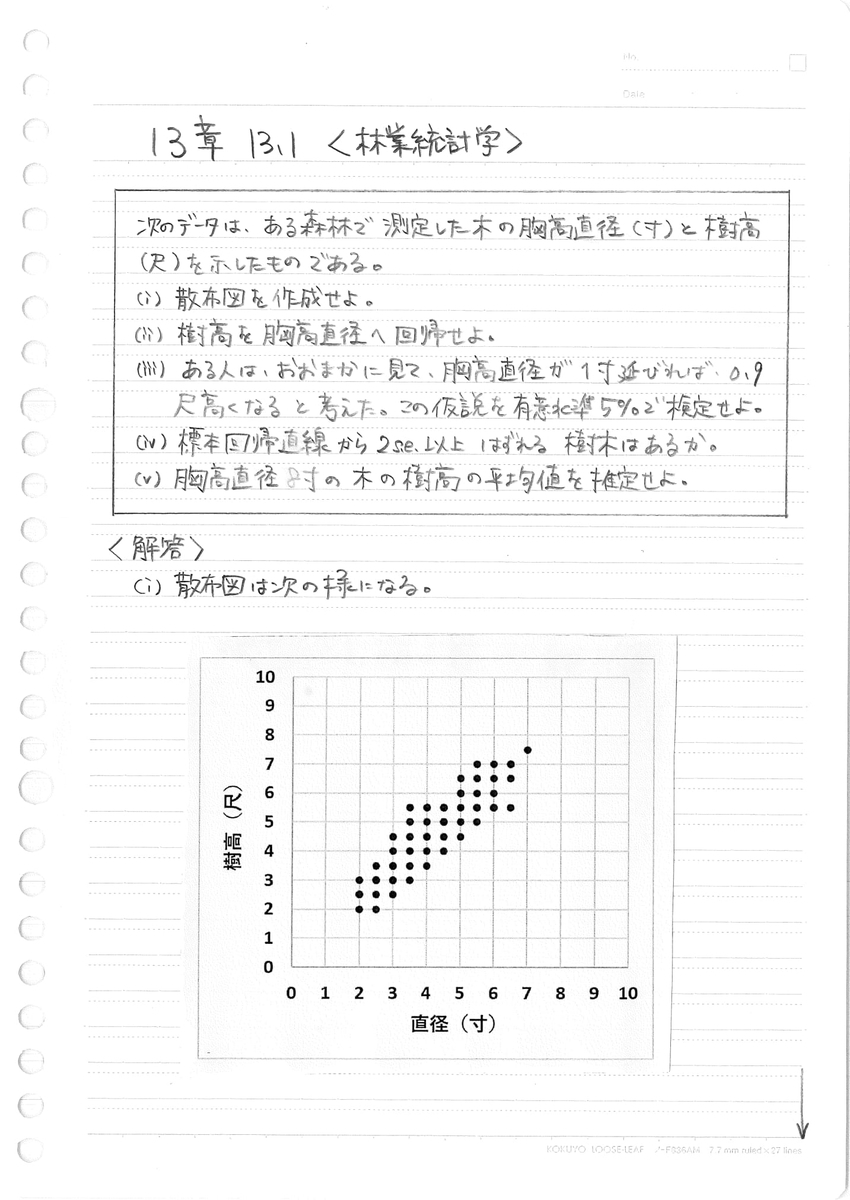 No.
Date
13章 13.1 <林業統計学>
次のデータは、ある森林で測定した木の胸高直径(寸)と樹高
(尺)を示したものである。
(i) 散布図を作成せよ。
(ii) 樹高を胸高直径へ回帰せよ。
(iii) ある人は、おおまかに見て、胸高直径が1寸延びれば、0.9
尺高くなると考えた。この仮説を有意水準5%で検定せよ。
(iv) 標本回帰直線から2s.e.以上はずれる樹木はあるか。
(v) 胸高直径8寸の木の樹高の平均値を推定せよ。
<解答>
(i) 散布図は次の様になる。
10
9
8
7
6
5
4
3
2
1
0
樹高(尺)
0 1 2 3 4 5 6 7 8 9 10
直径(寸)
KOKUYO LOOSE-LEAF ノ-F836AM 7.7 mm ruled×27 lines